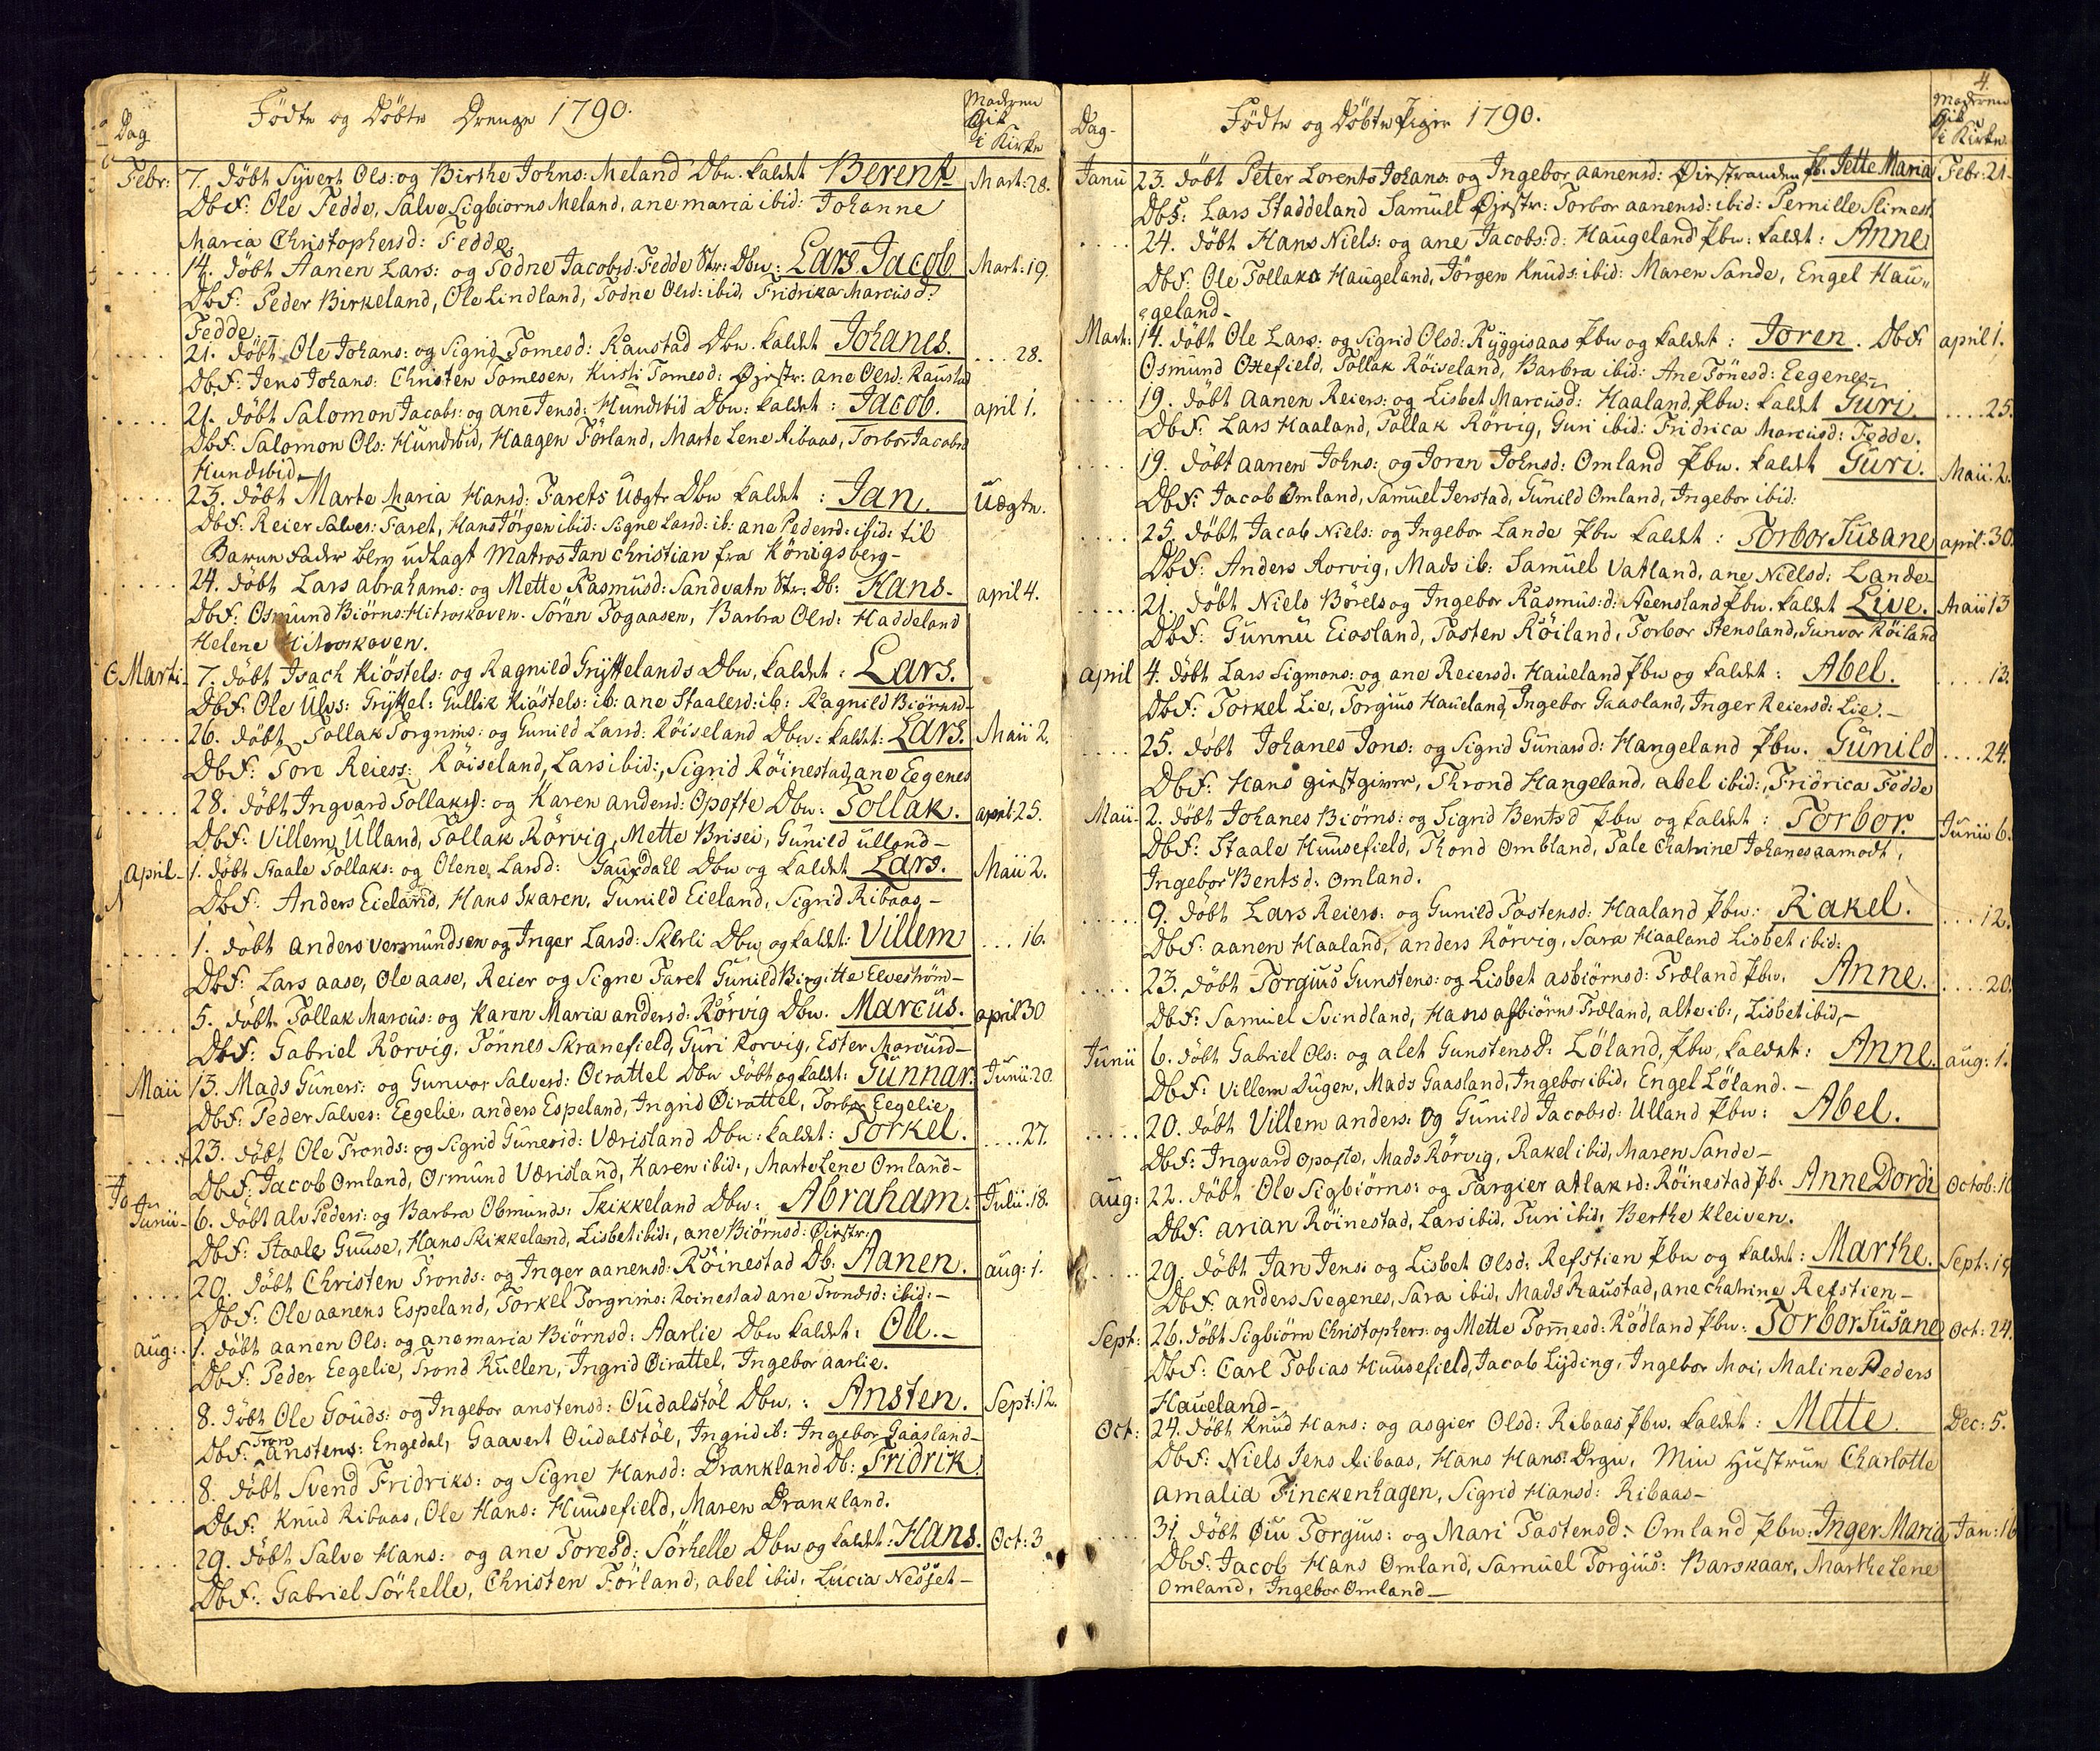 Dag
Födte og Döbte Drenge 1790.
Moderen
Gik
i Kirke
Febr: 7. döbt Syvert Ols: og Birthe Johns: Meland Dbn. kaldet Berent Mart: 28.
DbF: Ole Fedde, Salve Sigbiorns Meland, ane maria ibid: Johanne
Maria Christophersd: Fedde.
14. döbt Aanen Lars: og Todne Jacobsd: Fedde Str: Dbn: Lars Jacob Mart: 19.
DbF: Peder Birkeland, Ole Lindland, Todne Olsd: ibid, Fridrika Marcusd:
Fedde.
21. döbt Ole Johans: og Sigrid Tomesd: Raustad Dbn. kaldet Johanes. . . . 28.
DbF: Jens Johans: Christen Tomesen, Kirsti Tomesd: Øjestr: ane Olsd: Raustad
21. döbt Salomon Jacobs: og ane Jensd: Hundsbid Dbn: kaldet: Jacob. april 1.
DbF: Salomon Ols: Hundsbid, Haagen Förland, Marte Lene Ribaas, Torbor Jacobsd
Hundsbid
23. döbt Marte Maria Hansd: Farets Uægte Dbn kaldet: Jan. Uægte.
DbF: Reier Salves: Faret, Hans Jörgen ibid: Signe Larsd: ib: ane Pedersd: ibid: til
Barnefader blev udlagt Matros Jan Christian fra Königsberg-
24. döbt Lars abrahams: og Mette Rasmusd: Sandvatn Str: Db: Hans- april 4.
DbF: Osmund Biörns: Hitroskoven. Sören Togaasen, Barbra Olsd: Haddeland
Helene Hitroskoven.
Marti- 7. döbt Isach Kiöstels: og Ragnild Gryttelands Dbn, kaldet: Lars.
DbF: Ole Ulvs: Gryttel: Gullik Kiöstels: ib: ane Staalesd: ib: Ragnild Biörnsd-
26. döbt Tollak Torgrims: og Gunild Larsd: Röiseland Dbn: kaldet: Lars. Maii 2.
DbF: Tore Reiers: Röiseland, Lars ibid:, Sigrid Röinestad, ane Eegenes
28. döbt Ingvard Tollaks: og Karen andersd: Opofte Dbn: Tollak. april: 25.
DbF: Villem Ulland, Tollak Rörvig, Mette Brisei, Gunild ulland-
April- 1. döbt Staale Tollaks: og Olene Larsd: Gausdahl Dbn og kaldet Lars. Maii 2.
DbF: Anders Eieland, Hans Skaren, Gunild Eieland, Sigrid Ribaas-
1. döbt anders vermundsen og Inger Larsd: Skerli Dbn og kaldet: Villem . . . 16.
DbF: Lars aase, Ole aase, Reier og Signe Faret Gunild Birgitte Elveström-
5. döbt Tollak Marcus: og Karen Maria andersd: Rörvig Dbn. Marcus. april 30
DbF: Gabriel Rörvig, Tönnes Skranefield, Guri Rorvig, Ester Marcusd-
Maii 13. Mads Guners: og Gunvor Salvesd: Oirattel Dbn döbt og kaldt: Gunnar. Junii 20.
DbF: Peder Salves: Eegelie, anders Espeland, Ingrid Øirattel, Torbor Eegelie
23. döbt Ole Tronds: og Sigrid Gunersd: Værisland Dbn: kaldet: Torkel. . . . . 27.
DbF: Jacob Omland, Osmund Værisland, Karen ibid:, Marte Lene Omland-
Junii- 6. döbt alv Peders: og Barbra Obmunds: Skikkeland Dbn: Abraham. Julii. 18.
DbF: Staale Guuse, Hans Skikkeland, Lisbet ibid:, ane Biörnsd: Øirstr:
29. döbt Christen Tronds: og Inger aanensd: Röinestad Db: Aanen. aug: 1.
DbF: Ole aanens Espeland, Torkel Torgrims: Roinestad ane Trondsd: ibid:-
aug: 1. döbt aanen Ols: og ane maria Biörnsd: Aarlie Dbn kaldet: Oll.-
DbF: Peder Eegelie, Trond Rullen, Ingrid Oirattel, Ingebor aarlie.
8. döbt Ole Gouds: og Ingebor anstensd: Oudalstöl Dbn.: Ansten. Sept: 12.
DbF: Tron anstens: Engedal, Gaavert Oudalstöl, Ingrid ib: Ingebor Gaasland-
8. döbt Svend Fridriks: og Signe Hansd: Drankland Db: Fridrik.
DbF: Knud Ribaas, Ole Hans: Huusefield, Maren Drankland.
29. döbt Salve Hans: og ane Toresd: Sörhelle Dbn og kaldet: Hans. Oct: 3
DbF: Gabriel Sörhelle, Christen Förland, abel ibid. Lucia Nesset-
4.
Dag-
Födte og Döbte Piger 1790.
Moderen
gik
i Kirke
Janu 23. döbt Peter Lorents Johans: og Ingebor aanensd: Øirstranden Pb. Jette Maria Febr: 21-
DbF: Lars Staddeland Samuel Øjestr: Torbor aanensd: ibid: Pernille Slimest.
24. döbt Hans Niels: og ane Jacobs:d: Haugeland Pbn: kaldt: Anne
DbF: Ole Tollaks Haugeland, Jörgen Knuds: ibid: Maren Sande, Engel Hau„
geland-
Mart: 14. döbt Ole Lars: og Sigrid Olsd: Ryggisaas Pbn og kaldet: Joren. DbF: april 1.
Osmund Ottefield, Tollak Röiseland, Barbra ibid: Ane Tönesd: Eegenes-
19. döbt aanen Reiers: og Lisbet Marcusd: Haaland, Pbn: kaldet Guri. . . . . 25.
DbF: Lars Haaland, Tollak Rörvig, Guri ibid: Fridrica Marcusd: Fedde.
19. döbt aanen Johns: og Joren Johnsd: Omland Pbn. kaldet Guri. Maii. 2.
DbF: Jacob Omland, Samuel Jerstad, Gunild Omland, Ingebor ibid:
25. döbt Jacob Niels: og Ingebor Lande Pbn kaldet: Torbor Susane april: 30.
DbF: Anders Rorvig, Mads ib: Samuel Vatland, ane Nielsd: Lande-
21. döbt Niels Börels og Ingebor Rasmus:d: Steensland Pbn. kaldet Live. Maii 13
DbF: Gunnu Eiosland, Tosten Röiland, Torbor Stensland, Gunvor Röiland
april 4. döbt Lars Sigmons: og ane Reiersd. Haueland Pbn og kaldet: Abel. . . . . 13.
DbF: Torkel Lie, Torgius Haueland, Ingebor Gaasland, Inger Reiersd: Lie.-
25. döbt Johanes Jons: og Sigrid Gunarsd: Hangeland Pbn. Gunild . . . . 24.
DbF: Hans giestgiver, Thrond Hangeland, abel ibid:, Fridrica Fedde
Maii- 2. döbt Johanes Biörns: og Sigrid Bentsd Pbn og kaldet: Torbor. Junii 6.
DbF: Staale Huusefield, Thond Ombland, Tale Chatrine Johanes aamodt,
Ingebor Bentsd: Omland.
9. döbt Lars Reiers: og Gunild Tostensd: Haaland Pbn: Rakel. . . . 12.
DbF: aanen Haaland, anders Rörvig, Sara Haaland Lisbet ibid:
23. döbt Torgius Gunstens: og Lisbet asbiörnsd: Træland Pbn. Anne. . . . . 20.
DbF: Samuel Svindland, Hans asbiörns Træland, alte ib:, Lisbet ibid,-
Junii 6. döbt Gabriel Ols: og alet Gunstensd: Löland, Pbn, kaldet: Anne. aug: 1.
DbF: Villem Dugen, Mads Gaasland, Ingebor ibid, Engel Löland.-
20. döbt Villem anders: og Gunild Jacobsd: Ulland Pbn: Abel.
DbF: Ingvard opofte, Mads Rörvig, Rakel ibid, Maren Sande-
aug: 22. döbt Ole Sigbiörns: og Targier atlaksd: Röinestad Pb. Anne Dordi Octob: 10
DbF: arian Röinestad, Lars ibid, Turi ibid, Berthe Kleiven.
29. döbt Jan Jens: og Lisbet Olsd: Refstien Pbn og kaldet: Marthe. Sept: 19
DbF: anders Svegenes, Sara ibid, Mads Raustad, ane Chatrine Refstien,-
Sept: 26. döbt Sigbiörn Christophers: og Mette Tomesd: Rödland Pbn: Torbor Susane Oct: 24.
DbF: Carl Tobias Huusefield, Jacob Lyding, Ingebor Moi, Maline Peders
Haueland-
Oct: 24. döbt Knud Hans: og asgier Olsd: Ribaas Pbn. kaldet: Mette. Dec: 5.
DbF: Niels Jens Ribaas, Hans Hans: Drgn. Min Hustrue Charlotte
amalia Finckenhagen, Sigrid Hansd: Ribaas-
31. döbt Øiu Torgius: og Mari Tastensd: Omland Pbn: Inger Maria Jan: 16
DbF: Jacob Hans Omland, Samuel Torgius: Barskaar, Marthe Lene
Omland, Ingebor Omland-